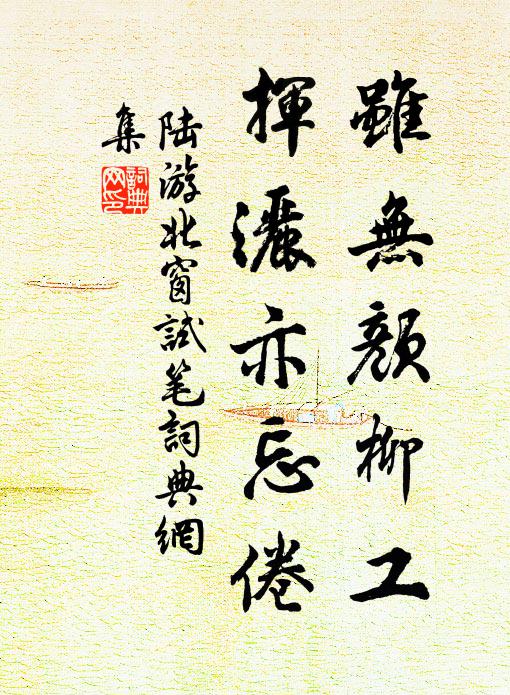 雖無顏柳工
揮灑亦忘倦
陸游北窗試笔詞典網
集
詞典
网印